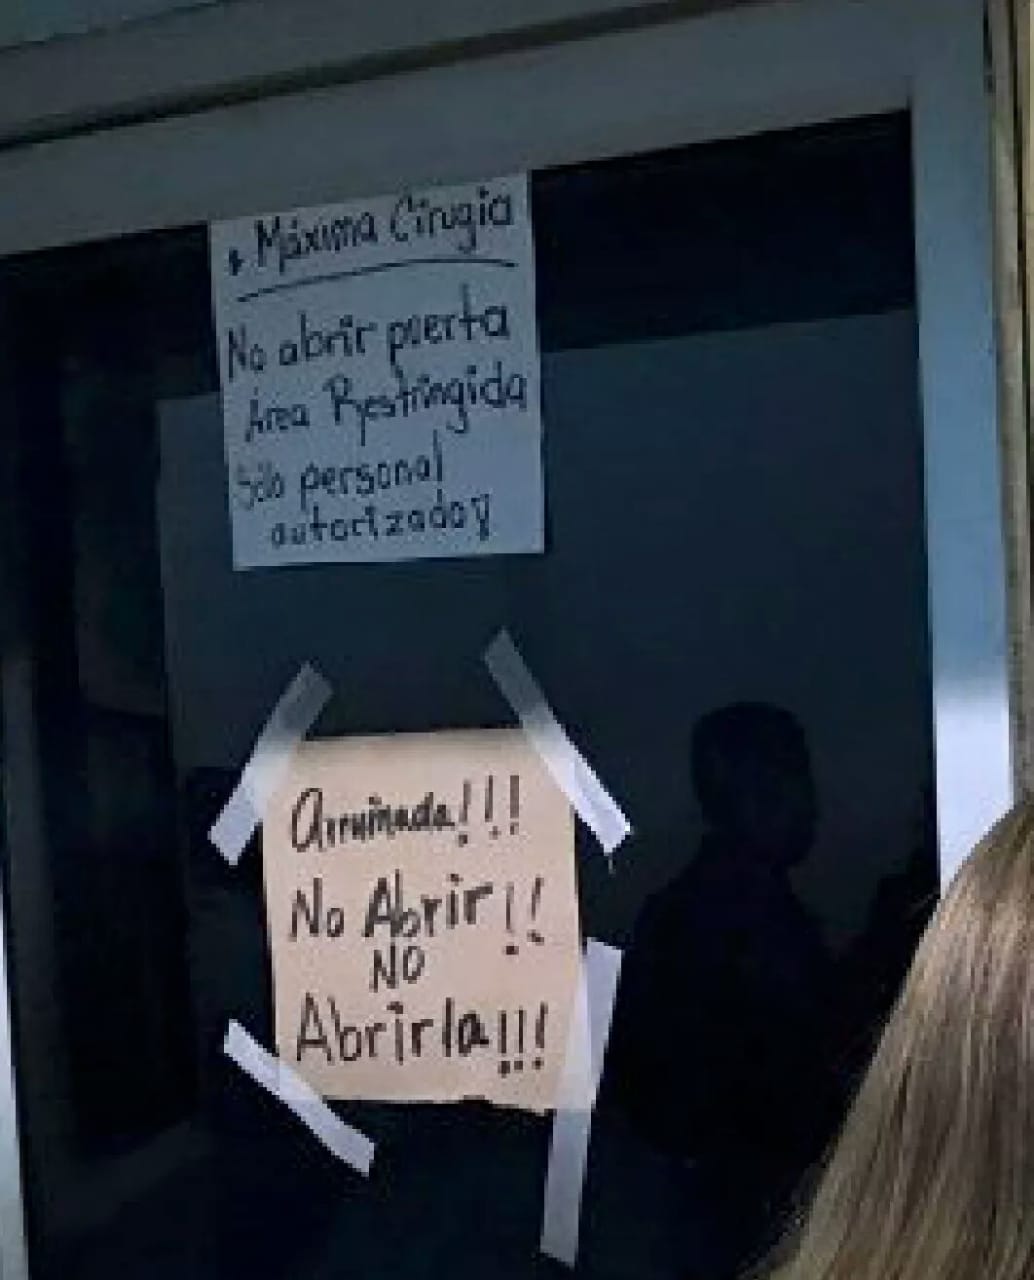 * Máxima Cirugia
No abrir puerta
Área Restringida
Sólo personal
autorizado
Arruinada!!!
No Abrir!!
NO
Abrirla!!!